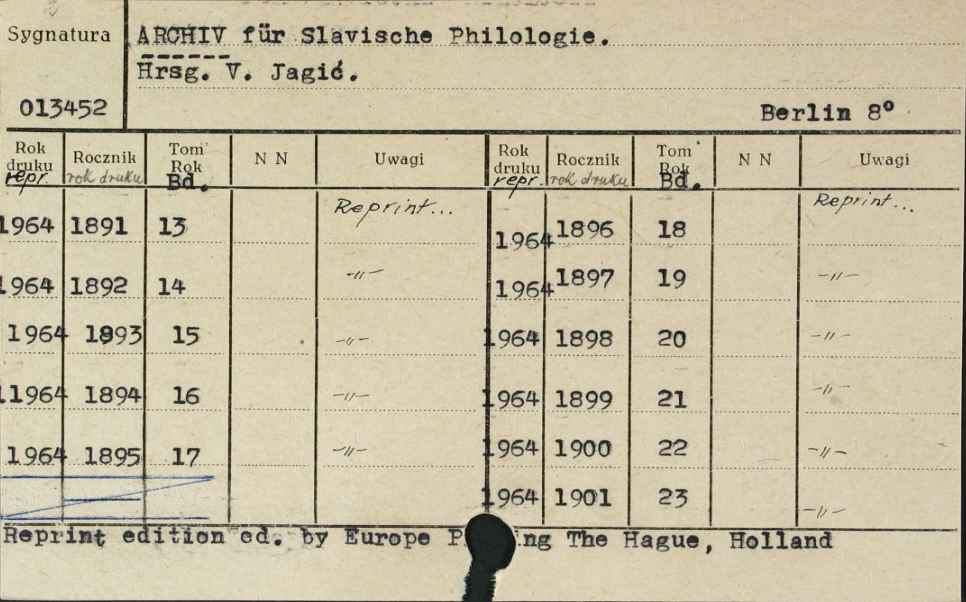 Sygnatura
ARCHIV für Slavische Philologie.
Hrsg. V. Jagić.
013452
Berlin 8°
Rok druku repr. Rocznik rok druku Tom Rok Bd. N N Uwagi Rok druku repr. Rocznik rok druku Tom Rok Bd. N N Uwagi
1964 1891 13 Reprint... 1964 1896 18 Reprint...
1964 1892 14 -"- 1964 1897 19 -"-
1964 1893 15 -"- 1964 1898 20 -"-
11964 1894 16 -"- 1964 1899 21 -"-
1964 1895 17 -"- 1964 1900 22 -"-
1964 1901 23 -"-
Reprint edition ed. by Europe The Hague, Holland